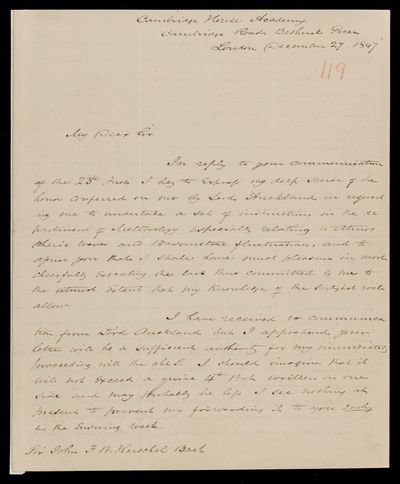 Cambridge House Academy
Cambridge Road Bethnal Green
London December 27 1847
119
My Dear Sir
In reply to your communication
of the 23d Inst. I beg to express my deep sense of the
honor conferred on me by Lord Auckland in request
ing me to undertake a set of instructions in the de
partment of Meteorology especially relating to Atmos
pheric waves and Barometric fluctuations, and to
assure you that I shall have much pleasure in most
cheerfully executing the task thus committed to me to
the utmost extent that my knowledge of the subject will
allow
I have received no communica
tion from Lord Auckland but I apprehend your
letter will be a sufficient authority for my immediately
proceeding with the M.S. I should imagine that it
will not exceed a quire 4to Bth written on one
side and may probably be less I see nothing at
present to prevent my forwarding it to you early
in the ensuing week.
Sir John F. W. Herschel Bart